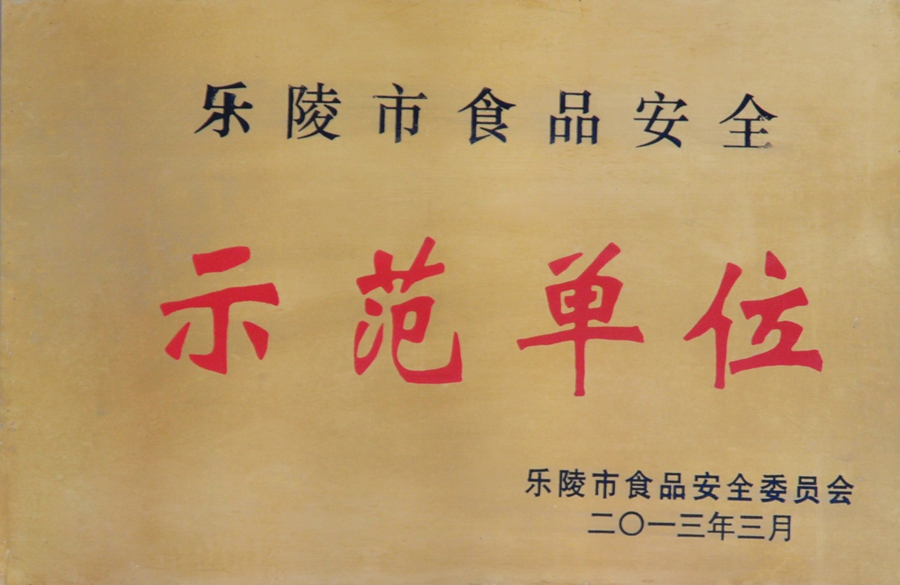 乐陵市食品安全
示范单位
乐陵市食品安全委员会
二〇一三年三月